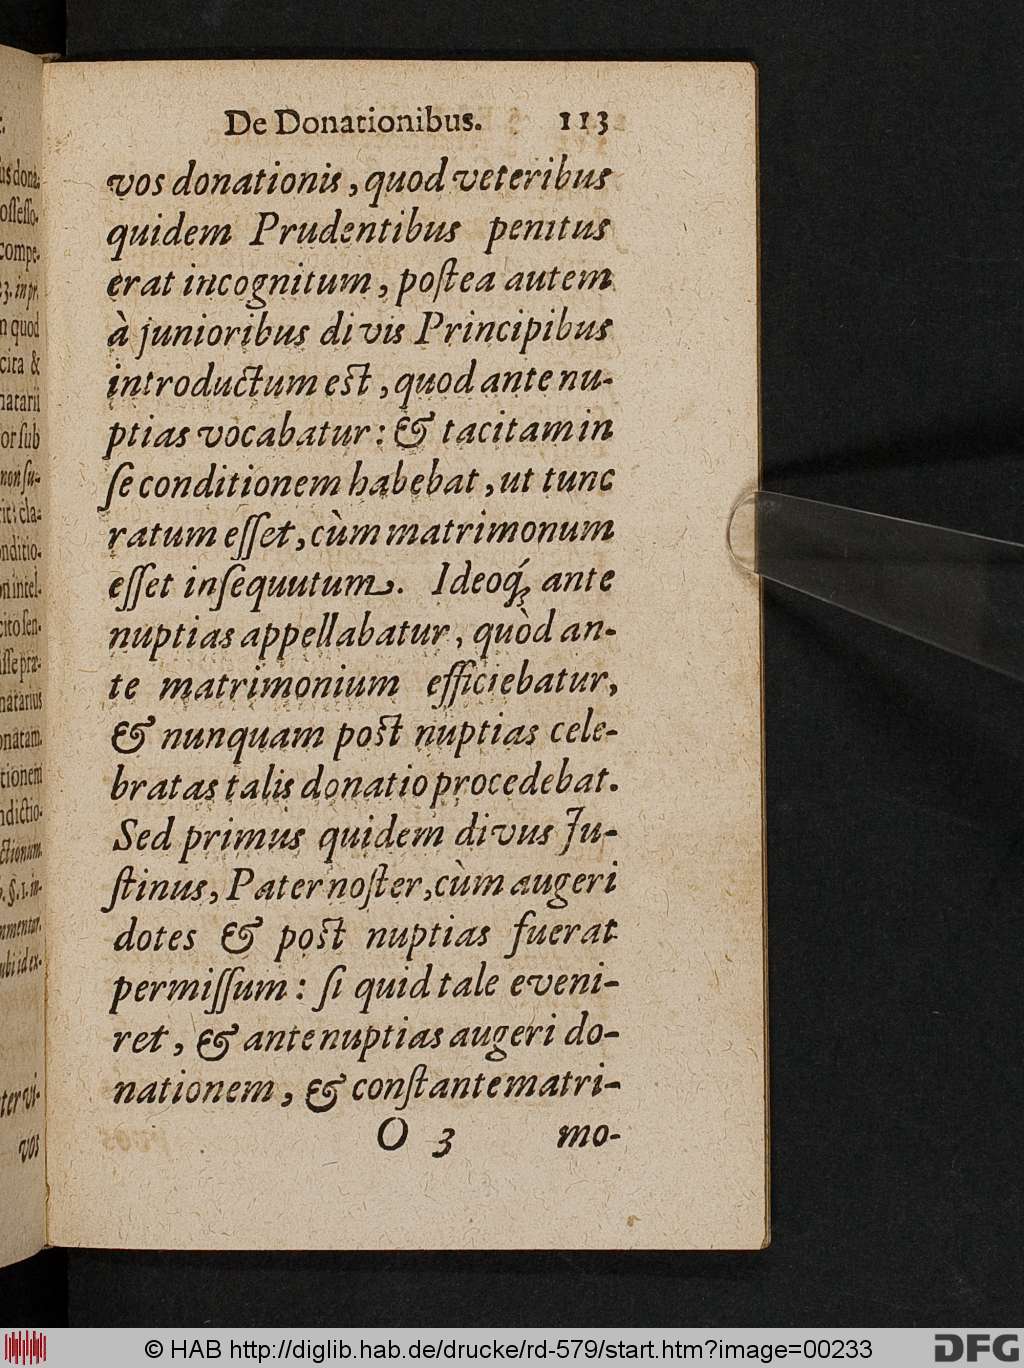 De Donationibus. 113
vos donationis, quod veteribus
quidem Prudentibus penitus
erat incognitum, poſtea autem
à junioribus divis Principibus
introductum eſt, quod ante nu-
ptias vocabatur: & tacitam in
ſe conditionem habebat, ut tunc
ratum eſſet, cùm matrimonum
eſſet inſequutum. Ideoq́; ante
nuptias appellabatur, quòd an-
te matrimonium efficiebatur,
& nunquam poſt nuptias cele-
bratas talis donatio procedebat.
Sed primus quidem divus Ju-
ſtinus, Pater noſter, cùm augeri
dotes & poſt nuptias fuerat
permiſſum: ſi quid tale eveni-
ret, & ante nuptias augeri do-
nationem, & conſtante matri-
O 3 mo-
© HAB http://diglib.hab.de/drucke/rd-579/start.htm?image=00233
DFG